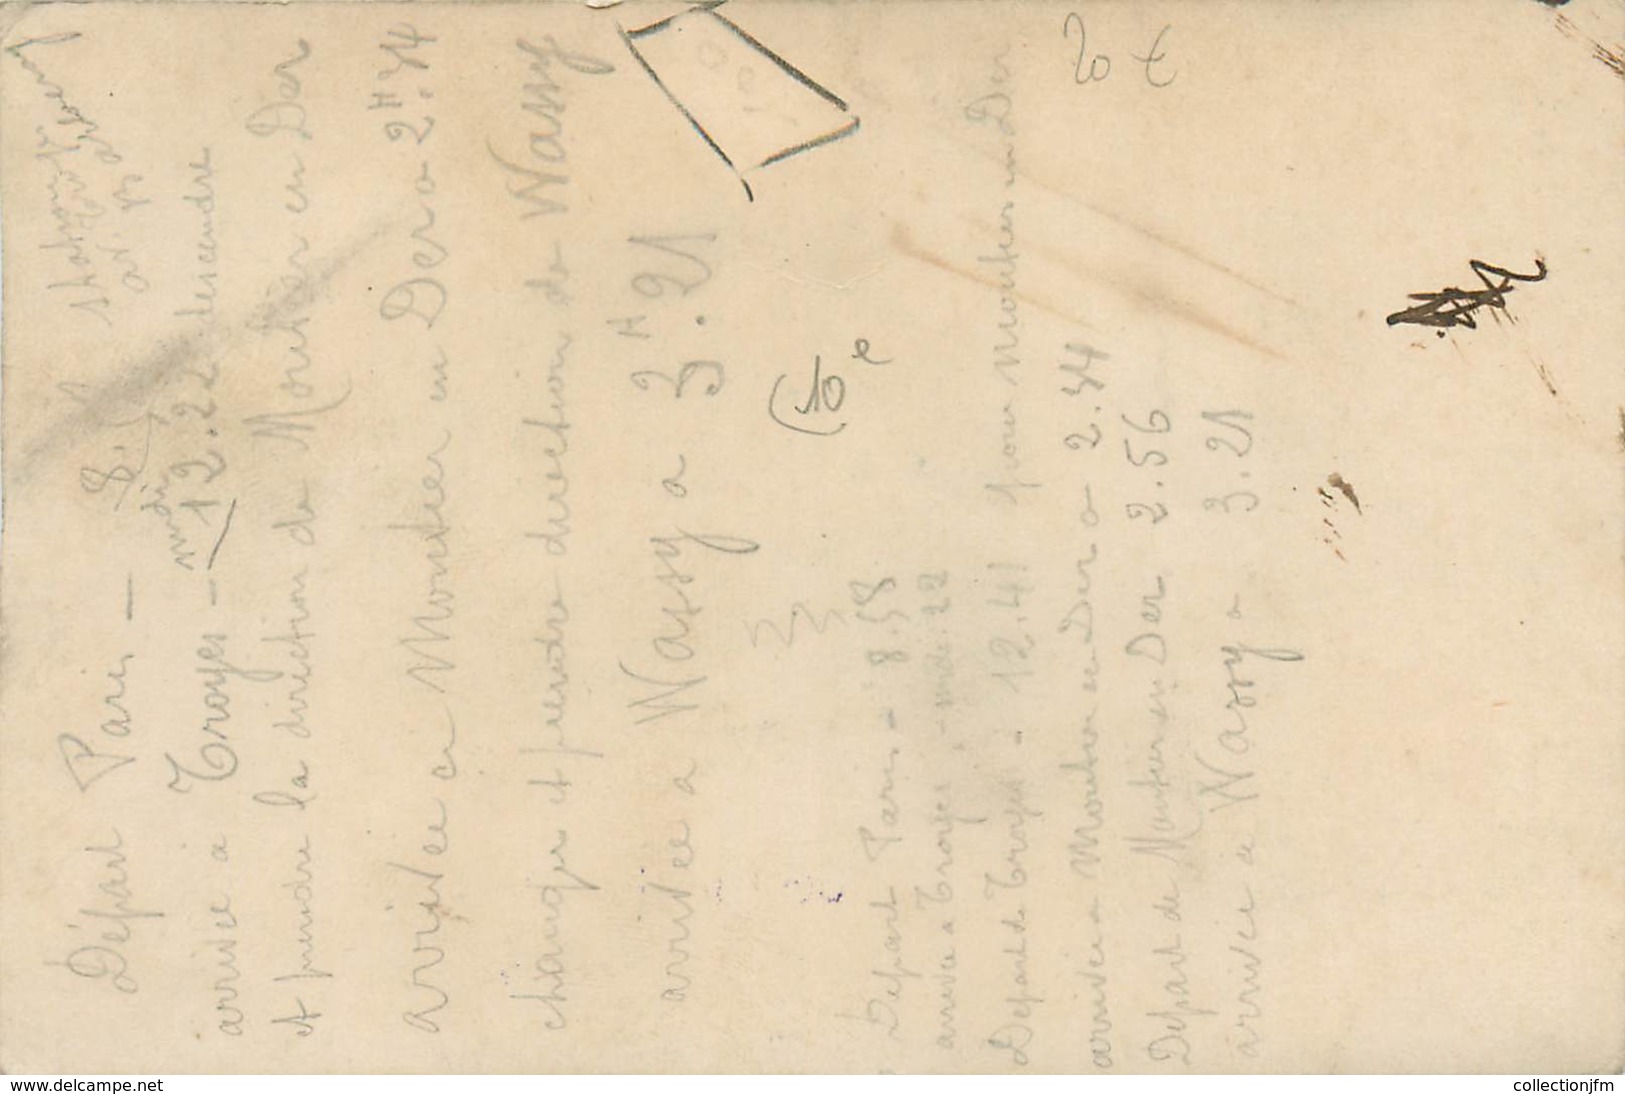 Départ Paris - 8.
arrivée à Troyes - midi 12.22 descendre
et prendre la direction de Moutier en Der
arrivée a Moutier en Der a 2.H44
changer et prendre direction de Wassy
arrivée a Wassy a 3H.21
(10e
20 €
Départ Paris - 8.58
arrivée a Troyes - midi 22
Depart de Troyes - 12.41 pour Moutier en Der
arrivée a Moutier en Der a 2.44
Départ de Moutier en Der 2.56
arrivée a Wassy a 3.21
www.delcampe.net
collectionjfm